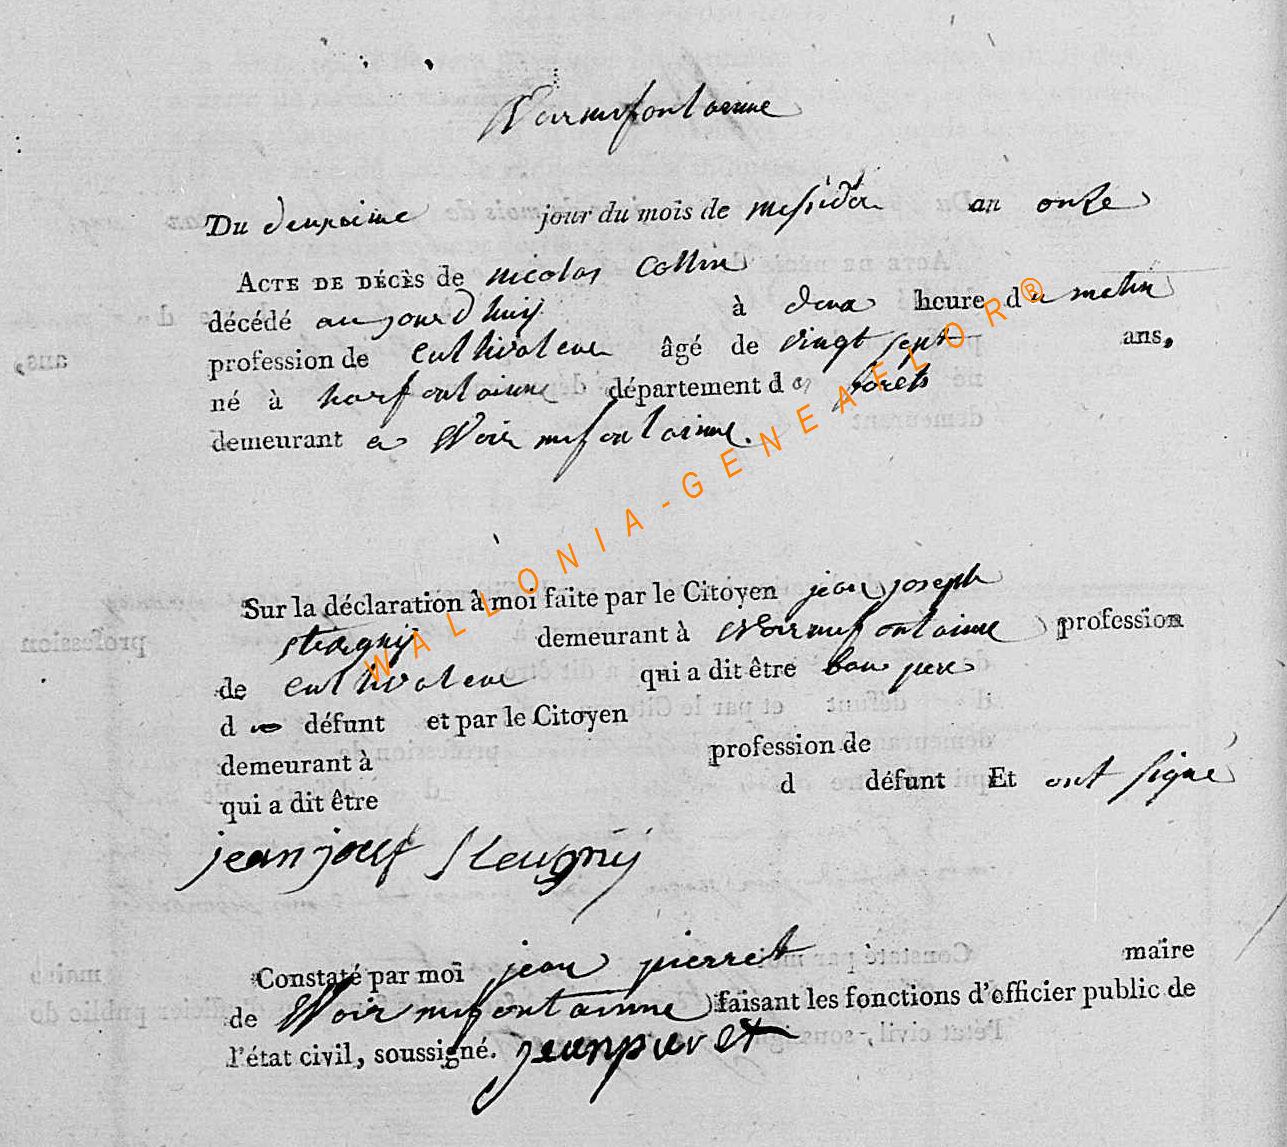 Warmifontainne
Du deuxsime jour du mois de messidor an onze
ACTE DE DÉCÈS de nicolas Collin
décédé aujourdhuij à deux heure du matin
profession de cultivateur âgé de vingt sept ans,
né à harfontainne département des forets
demeurant a Warmifontainne.
Sur la déclaration à moi faite par le Citoyen jean joseph
demeurant à Warmifontainne profession
de cultivateur qui a dit être beau pere
d u défunt et par le Citoyen
demeurant à profession de
qui a dit être d défunt Et ont signé
jean josef
Constaté par moi jean pierret maire
de Warmifontainne faisant les fonctions d'officier public de
l'état civil, soussigné. jean pierret
WALLONIA-GENEAFELOR®